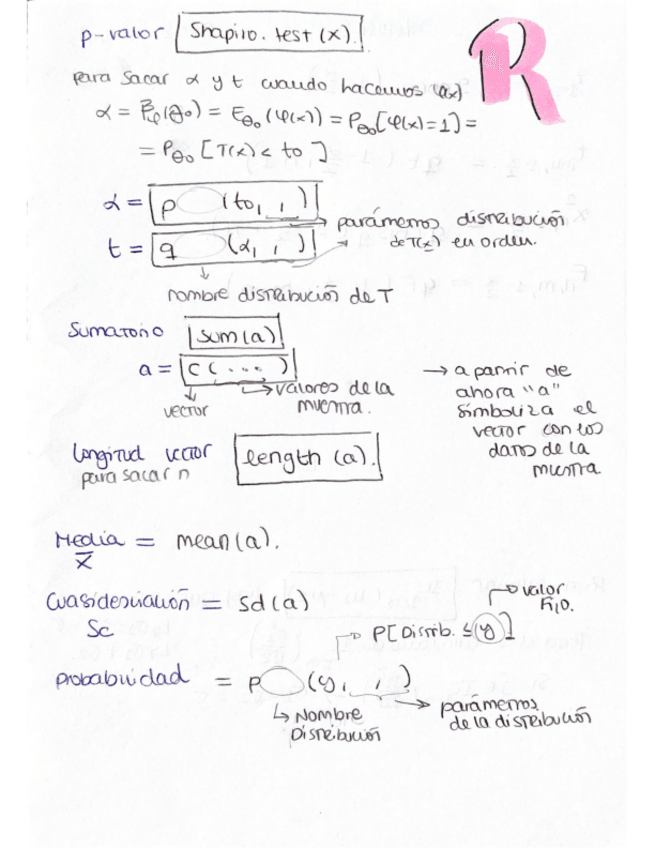 p-valor Shapiro.test(x). R
para sacar α y t cuando hacemos
α = = E_θ₀(φ(x)) = P_θ₀[φ(x)=1] =
= P_θ₀[T(x) < t₀]
α = p (t₀, , )
→ parámetros distribución
de T(x) en orden.
t = q (α, , )
nombre distribución de T
Sumatorio sum(a)
a = c(...)
vector
→ valores de la
muestra.
→ a partir de
ahora "a"
simboliza el
vector con los
datos de la
muestra
longitud vector length(a).
para sacar n
Media = mean(a).
x̄
Cuasidesviación = Sd(a)
Sc
→ valor
FIJO.
→ P[Distrib. ≤ y]
probabilidad = p (y, , )
↳ Nombre
Distribución
→ parámetros
de la distribución